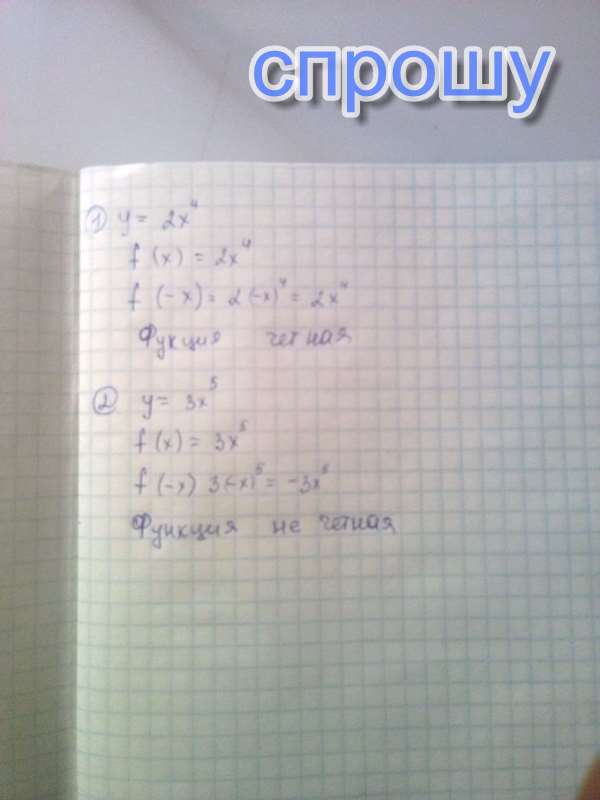 спрошу
① y = 2x⁴
f (x) = 2x⁴
f (-x) = 2 (-x)⁴ = 2x⁴
Фукция четная
② y = 3x⁵
f (x) = 3x⁵
f (-x) 3(-x)⁵ = -3x⁵
Функция не четная